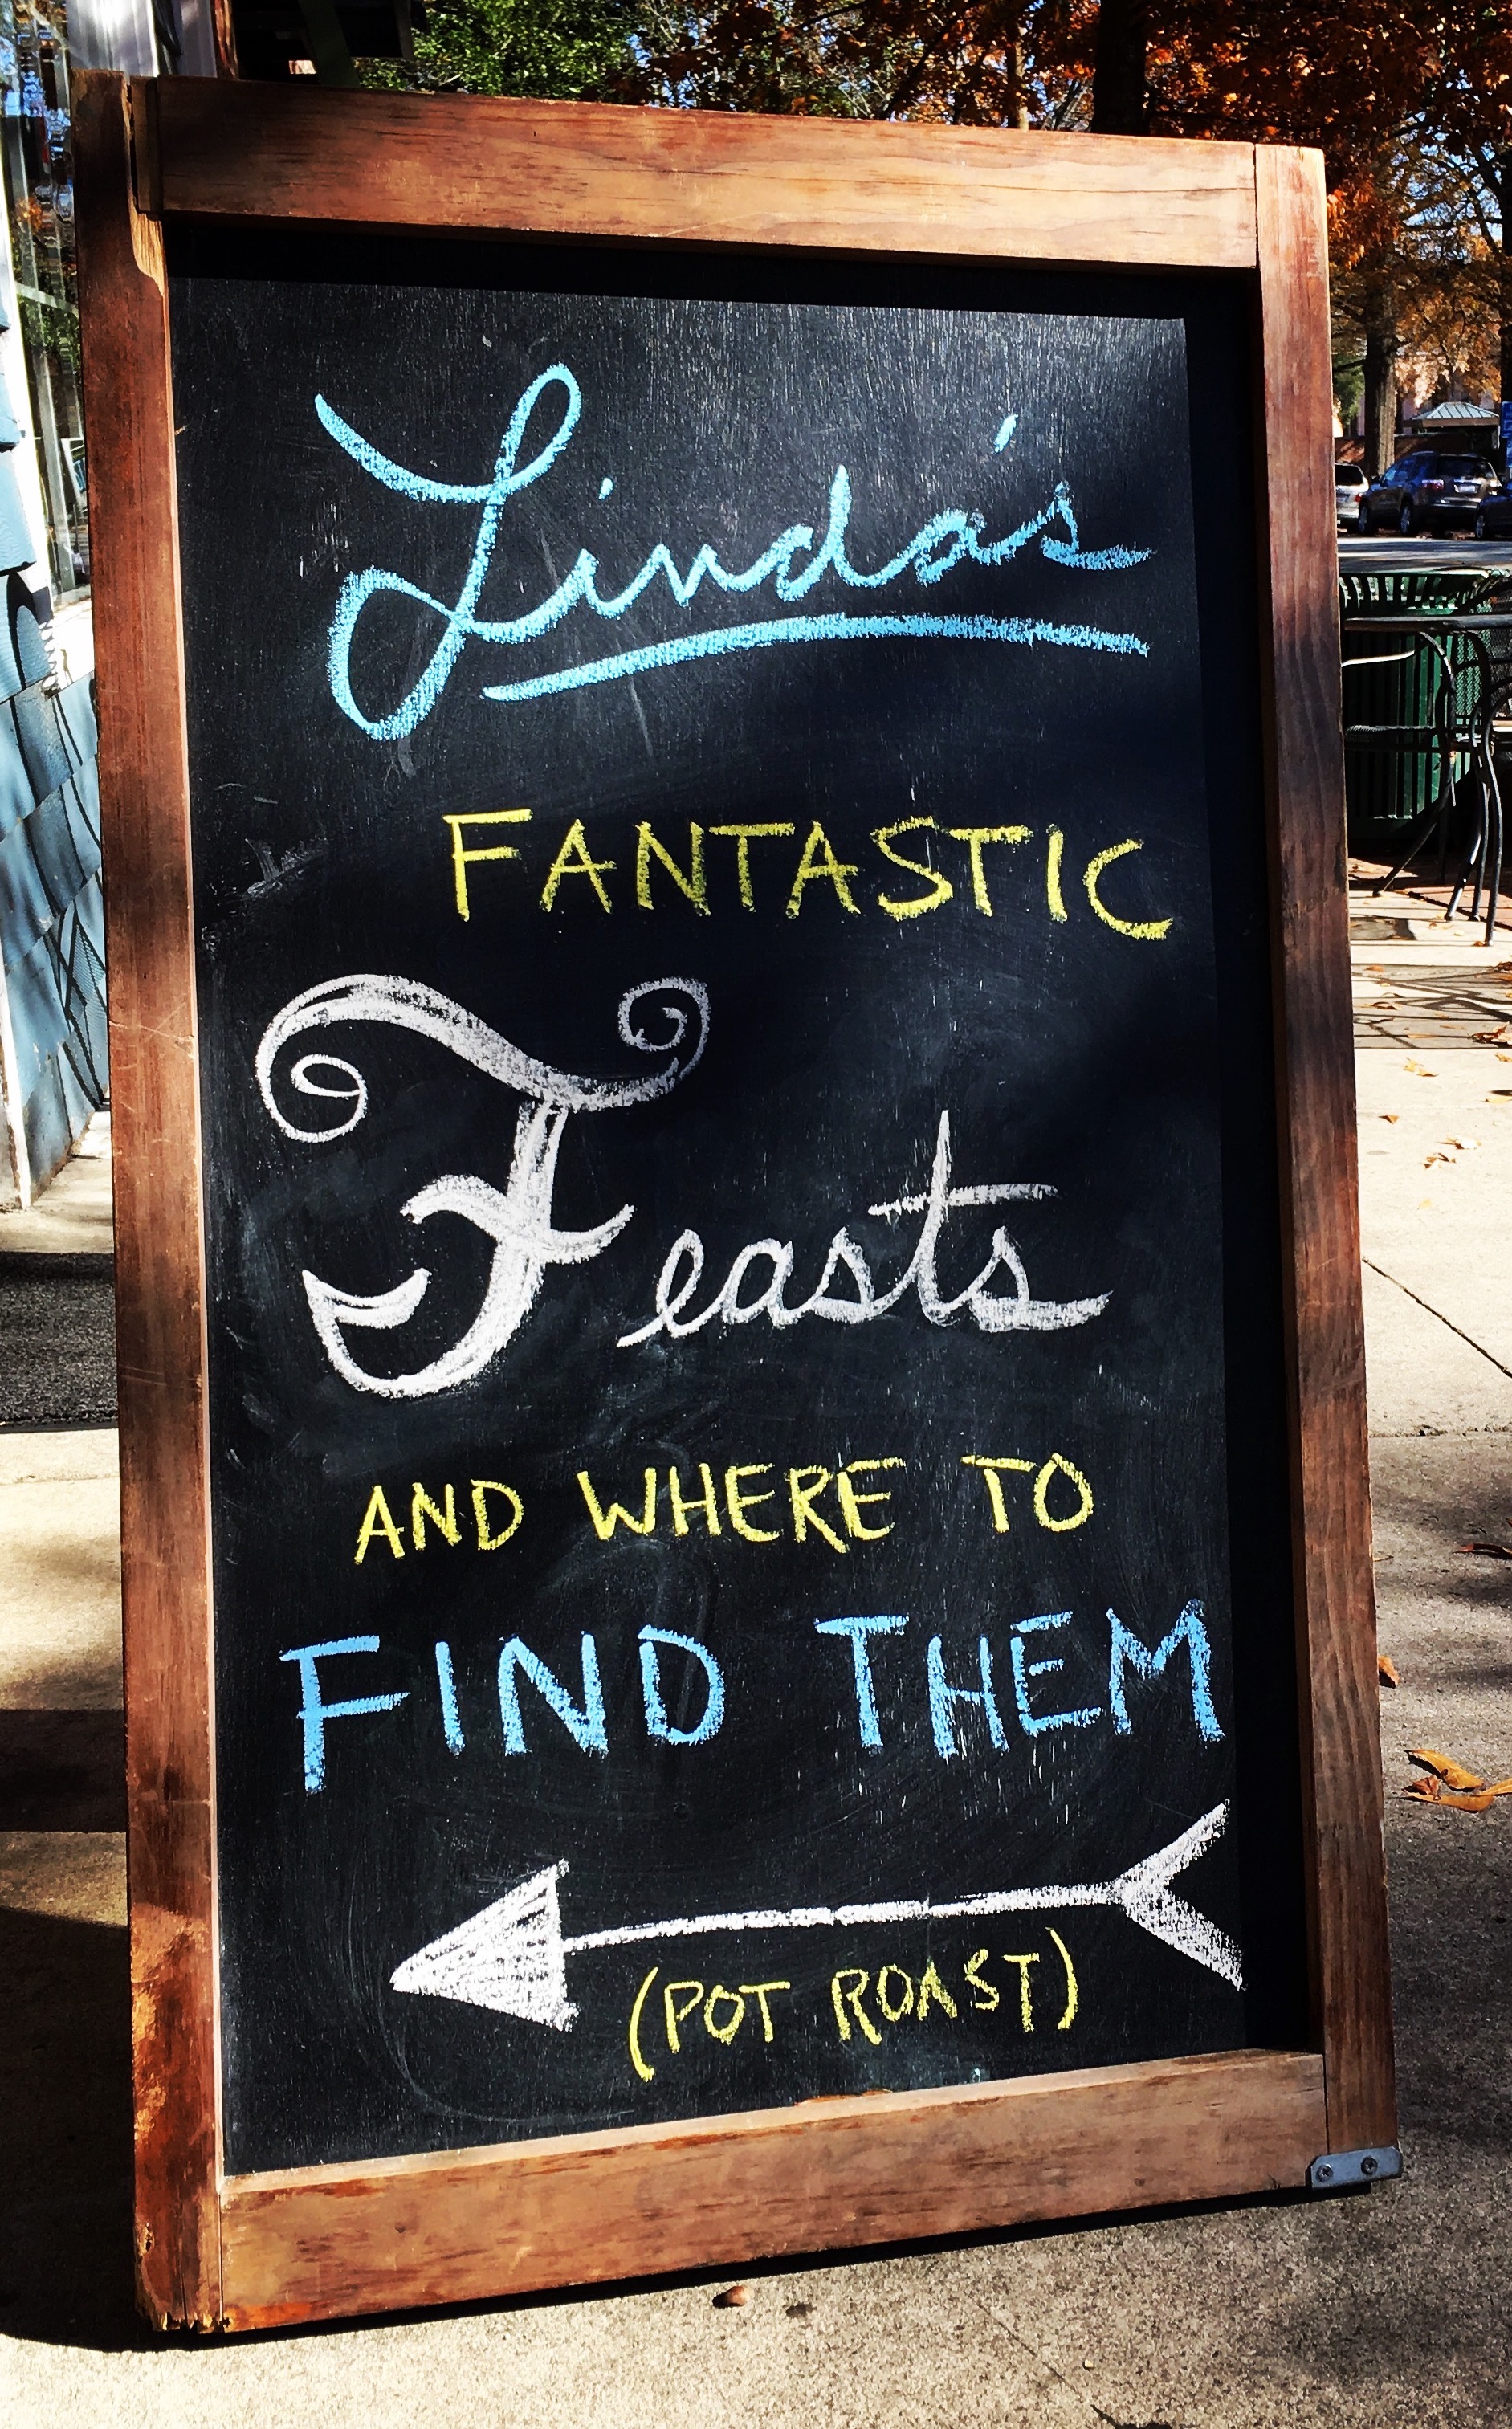 Linda's
FANTASTIC
Feasts
AND WHERE TO
FIND THEM
(POT ROAST)